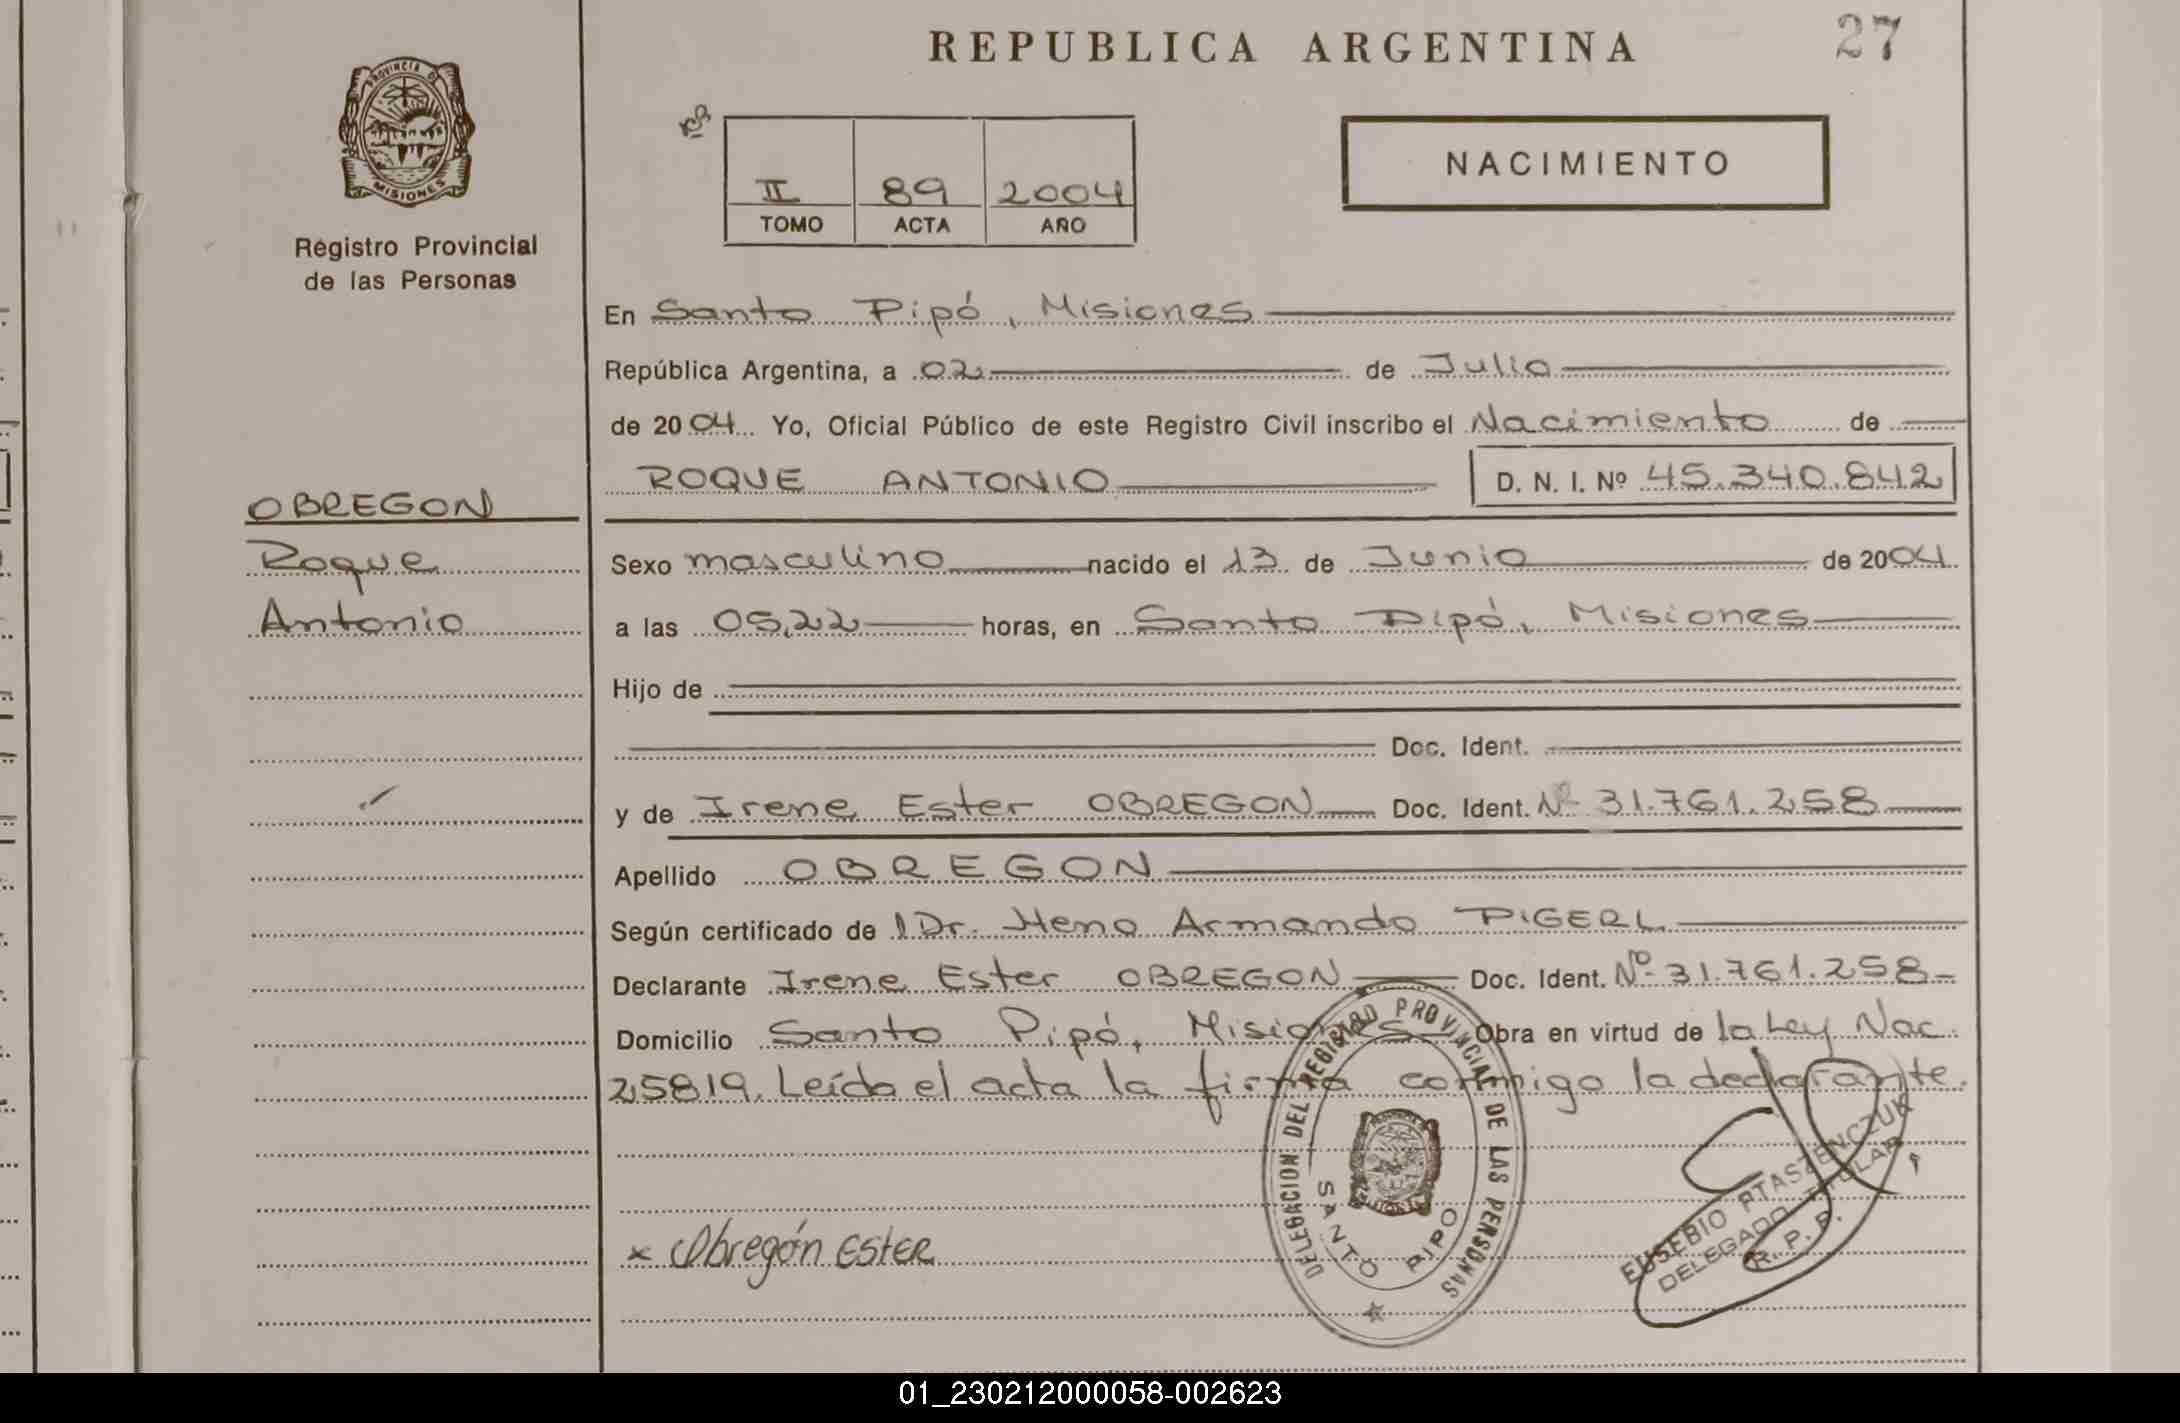 REPUBLICA ARGENTINA
27
PROVINCIA DE
MISIONES
Registro Provincial
de las Personas
II 89 2004
TOMO ACTA AÑO
NACIMIENTO
En Santo Pipó, Misiones
República Argentina, a 02 de Julio
de 2004 Yo, Oficial Público de este Registro Civil inscribo el Nacimiento de
ROQUE ANTONIO D. N. I. Nº 45.340.842
OBREGON
Roque
Antonio
Sexo masculino nacido el 13 de Junio de 2004
a las 05,22 horas, en Santo Pipó, Misiones
Hijo de
Doc. Ident.
y de Irene Ester OBREGON Doc. Ident. Nº 31.761.258
Apellido OBREGON
Según certificado de l Dr. Heno Armando PIGERL
Declarante Irene Ester OBREGON Doc. Ident. Nº 31.761.258
Domicilio Santo Pipó, Misiones Obra en virtud de la Ley Nac.
25819. Leída el acta la firma conmigo la declarante.
DELEGACION DEL REGISTRO PROVINCIAL DE LAS PERSONAS
SANTO PIPO
x Obregón EstER
EUSEBIO PTASZENCZUK
DELEGADO TITULAR
R. P. P.
01_230212000058-002623